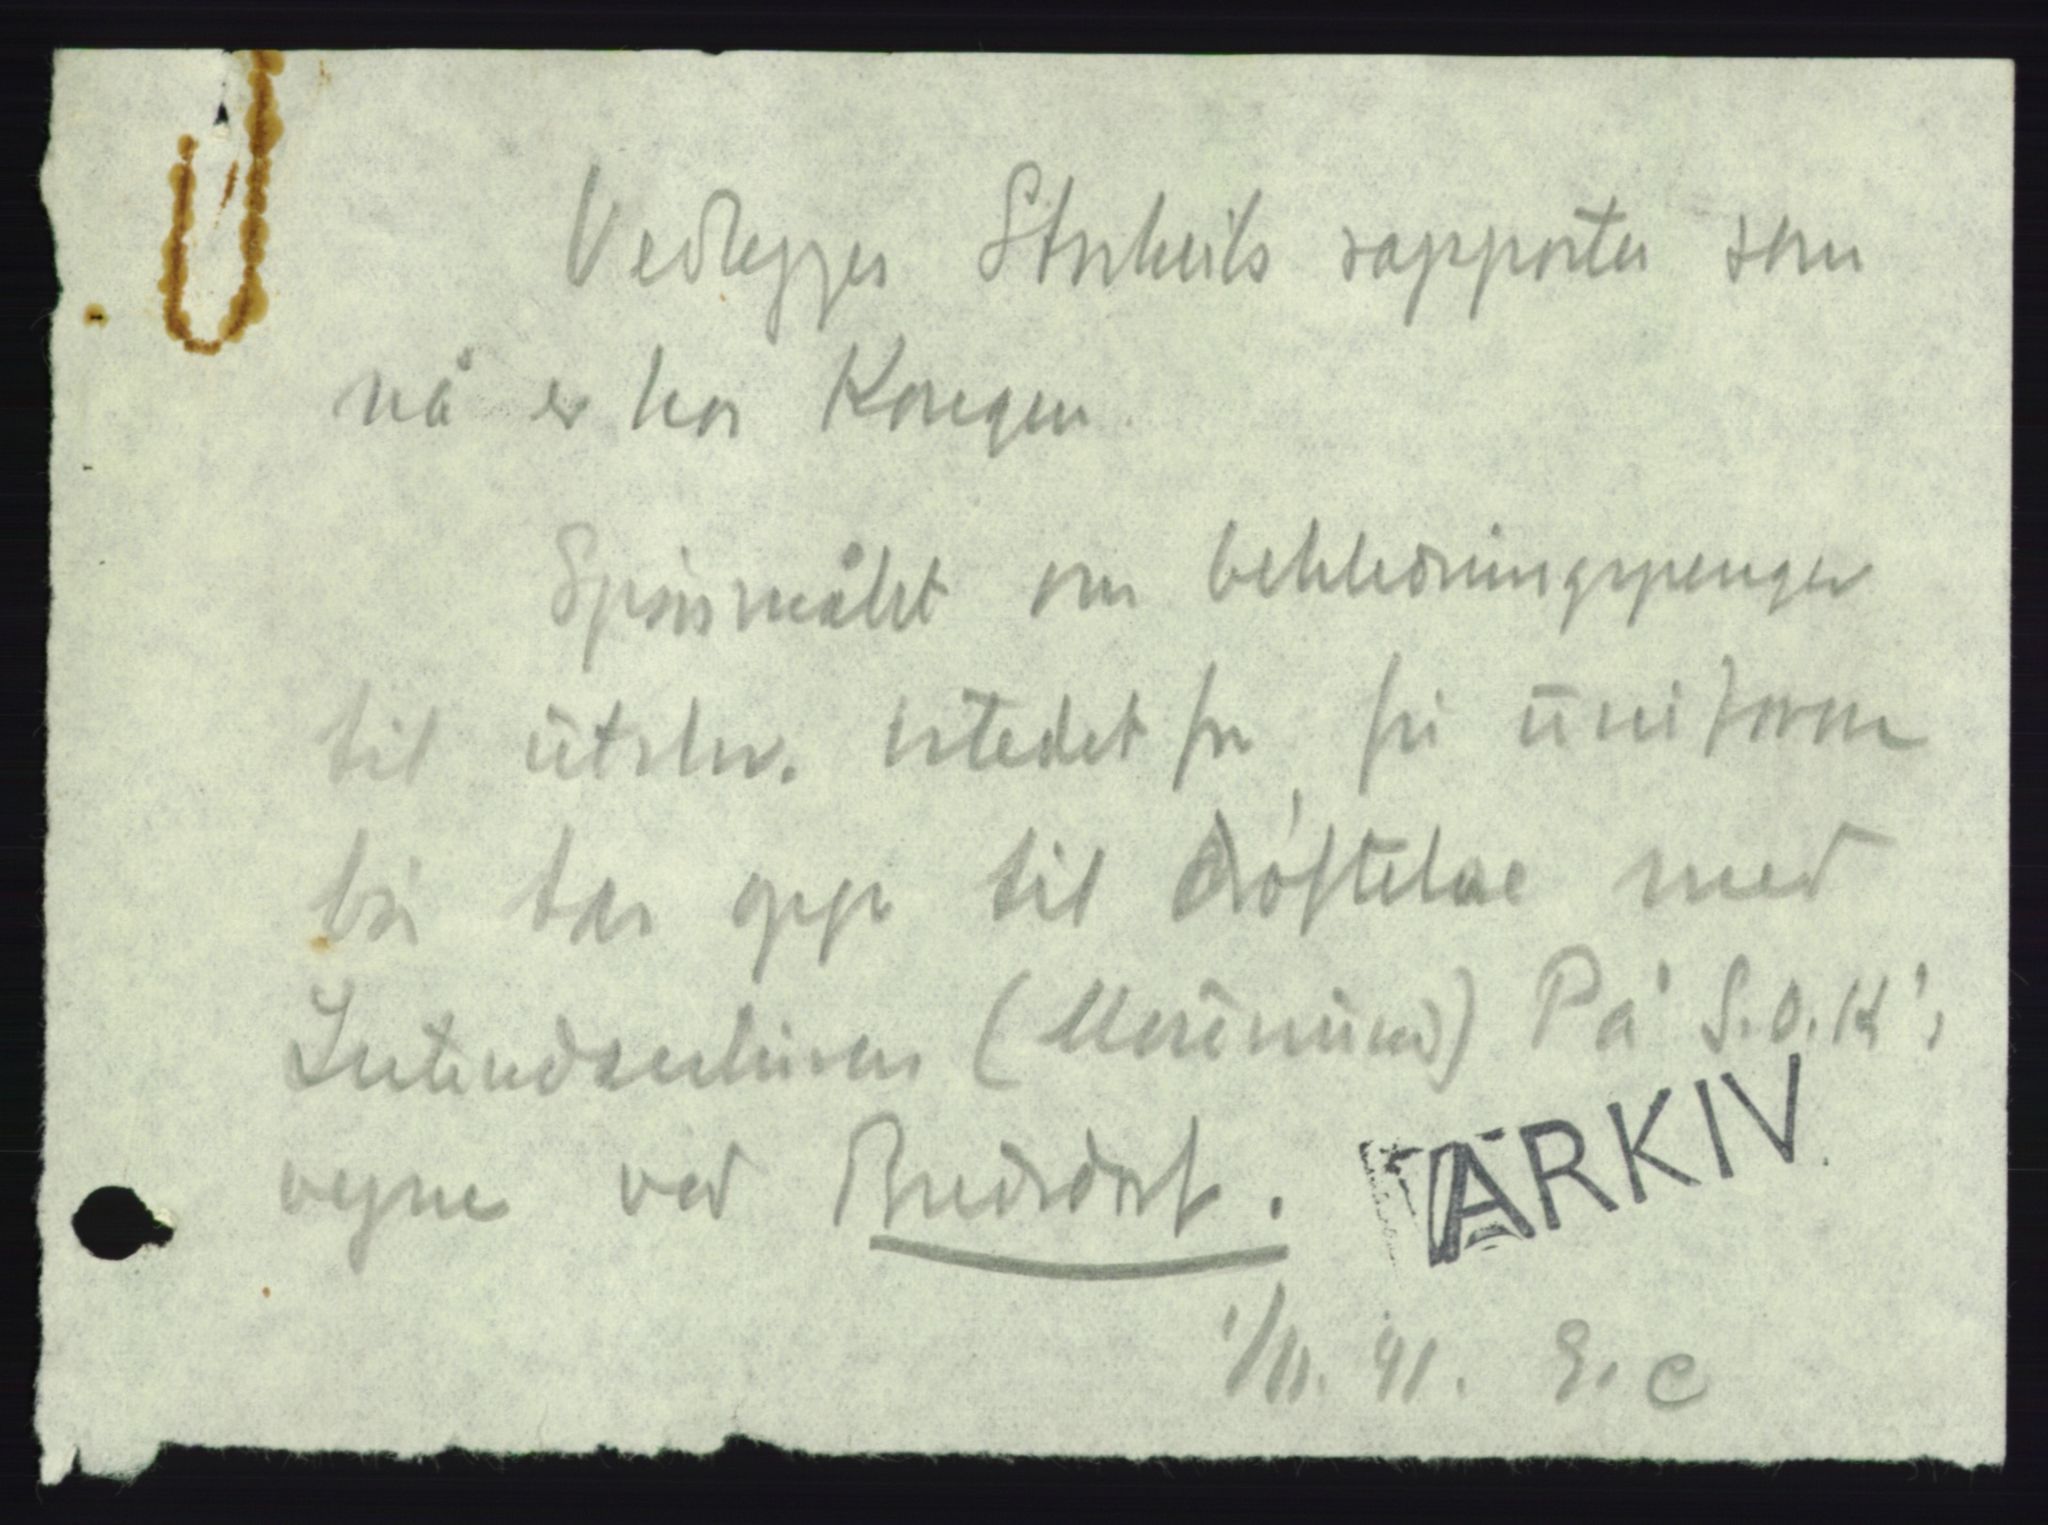 Vedlegges Storheils rapporter som
nå er hos Kongen.
Spörsmålet om bekledningspenger
til utskr. istedet for fri uniform
bör tas opp til dröftelse med
Intendanturen (Morŭmŭnd) På S.O.K's
vegne ved Bredsdorf.
ARKIV
1/11. 41. E. C